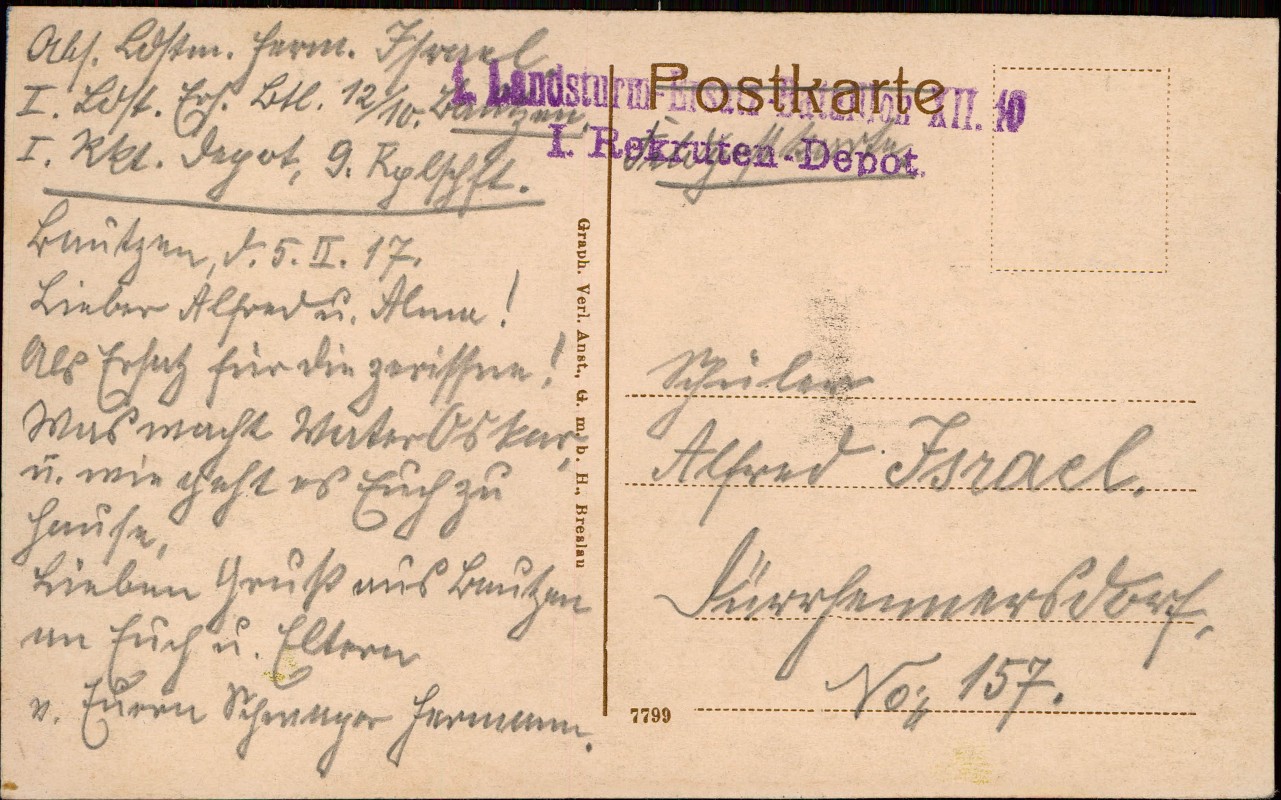 Abs. Ldstm. Herm. Israel
I. Ldst. Ers. Btl. 12/10. Bautzen,
I. Rkt. Depot, 9. Kplschft.
Bautzen, d. 5. II. 17.
Lieber Alfred u. Alma!
Als Ersatz für die zerissne!
Was macht Vater Oskar,
u. wie geht es Euch zu
Hause,
Lieben Gruß aus Bautzen
an Euch u. Eltern
v. Euern Schwager Hermann.
Graph. Verl. Anst., G. m. b. H., Breslau
Postkarte
I. Landsturm-Ersatz-Bataillon XII. 10
I. Rekruten-Depot.
Feldpostkarte
Schüler
Alfred Israel.
Dürrhennersdorf,
No: 157.
7799